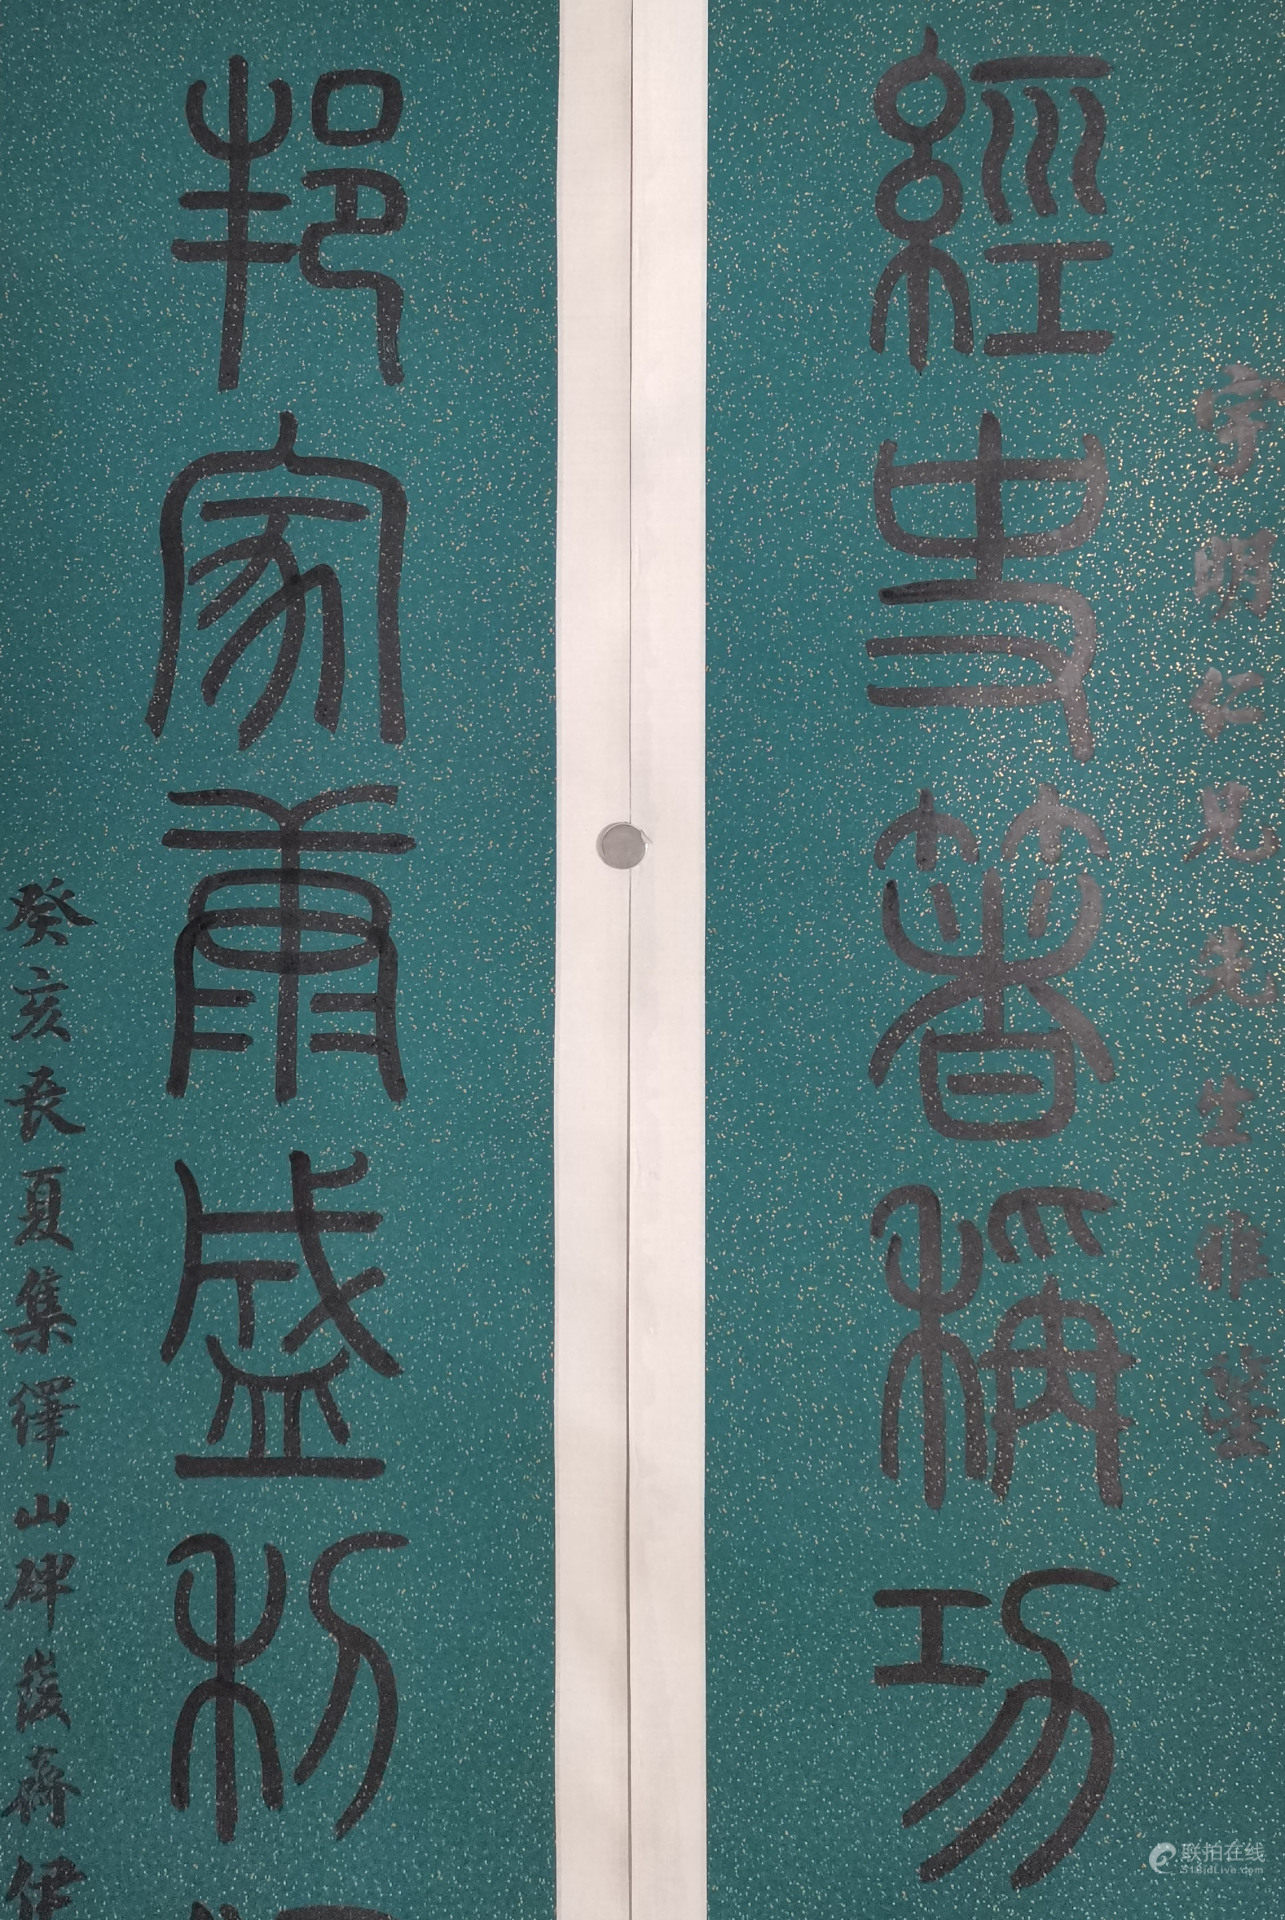 宇明仁兄先生雅鑒
經史箸稱功
邦家康盛利
癸亥長夏集繹山碑峻齋伊
联拍在线
51bidLive.com